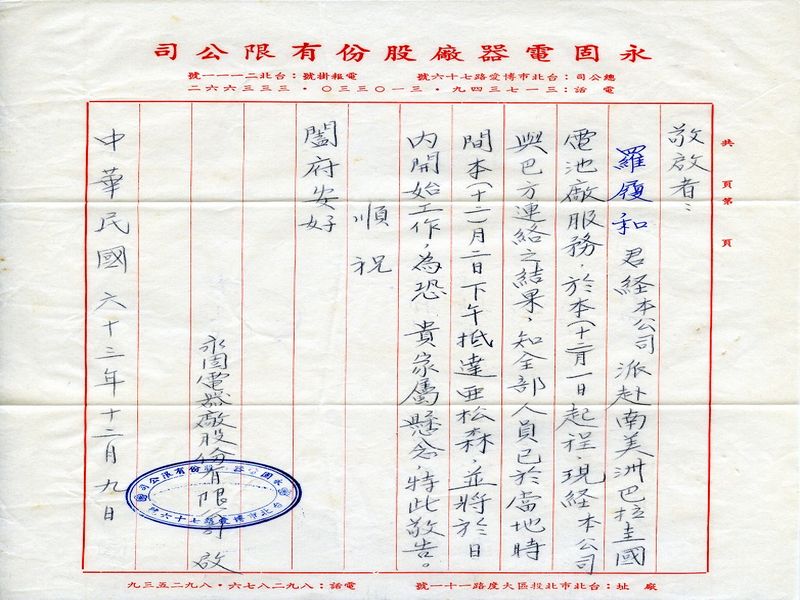 永固電器廠股份有限公司
總公司：台北市博愛路七十六號　電報掛號：台北二一一一號
電話：三一七三四九．三一〇三三〇．三三三六六二
共　頁第　頁
敬啟者：
羅履和 君経本公司 派赴南美洲巴拉圭國
電池廠服務，於本(十二)月一日起程，現経本公司
與巴方連絡之結果，知全部人員已於當地時
間本(十二)月二日下午抵達亜松森，並將於日
內開始工作，為恐 貴家屬懸念，特此敬告。
順祝
闔府安好
永固電器廠股份有限公司 啟
永固電器廠股份有限公司
台北市博愛路七十六號
中華民國六十三年十二月九日
廠址：台北市北投區大度路一十一號　電話：八九二八七六．八九二五三九